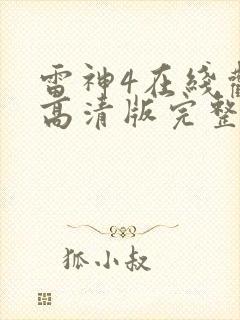 雷神4在线
高清版完整
狐小叔